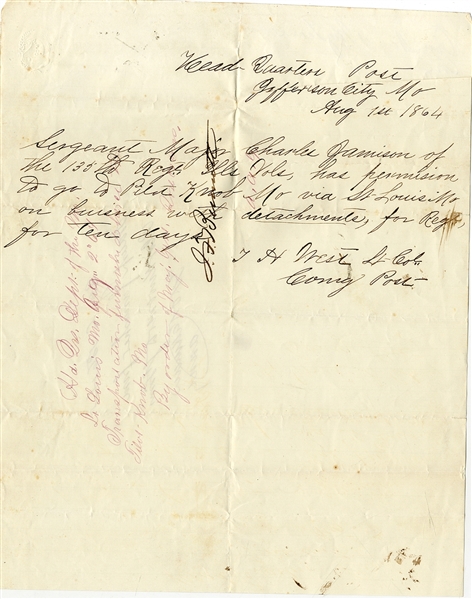 Head Quarters Post
Jefferson City Mo
Aug 1st 1864
Sergeant Major Charles Jamison of
the 135th Regt Ills Vols, has permision
to go to Pilot Knob Mo via St Louis Mo
on business with detachments, for Regt,
for ten days
J H West Lt Col
Comg Post
Hd. Qrs. Dept. of the
St. Louis Mo. Aug 2
Transportation furnished
Pilot Knob. Mo
By order of Maj.